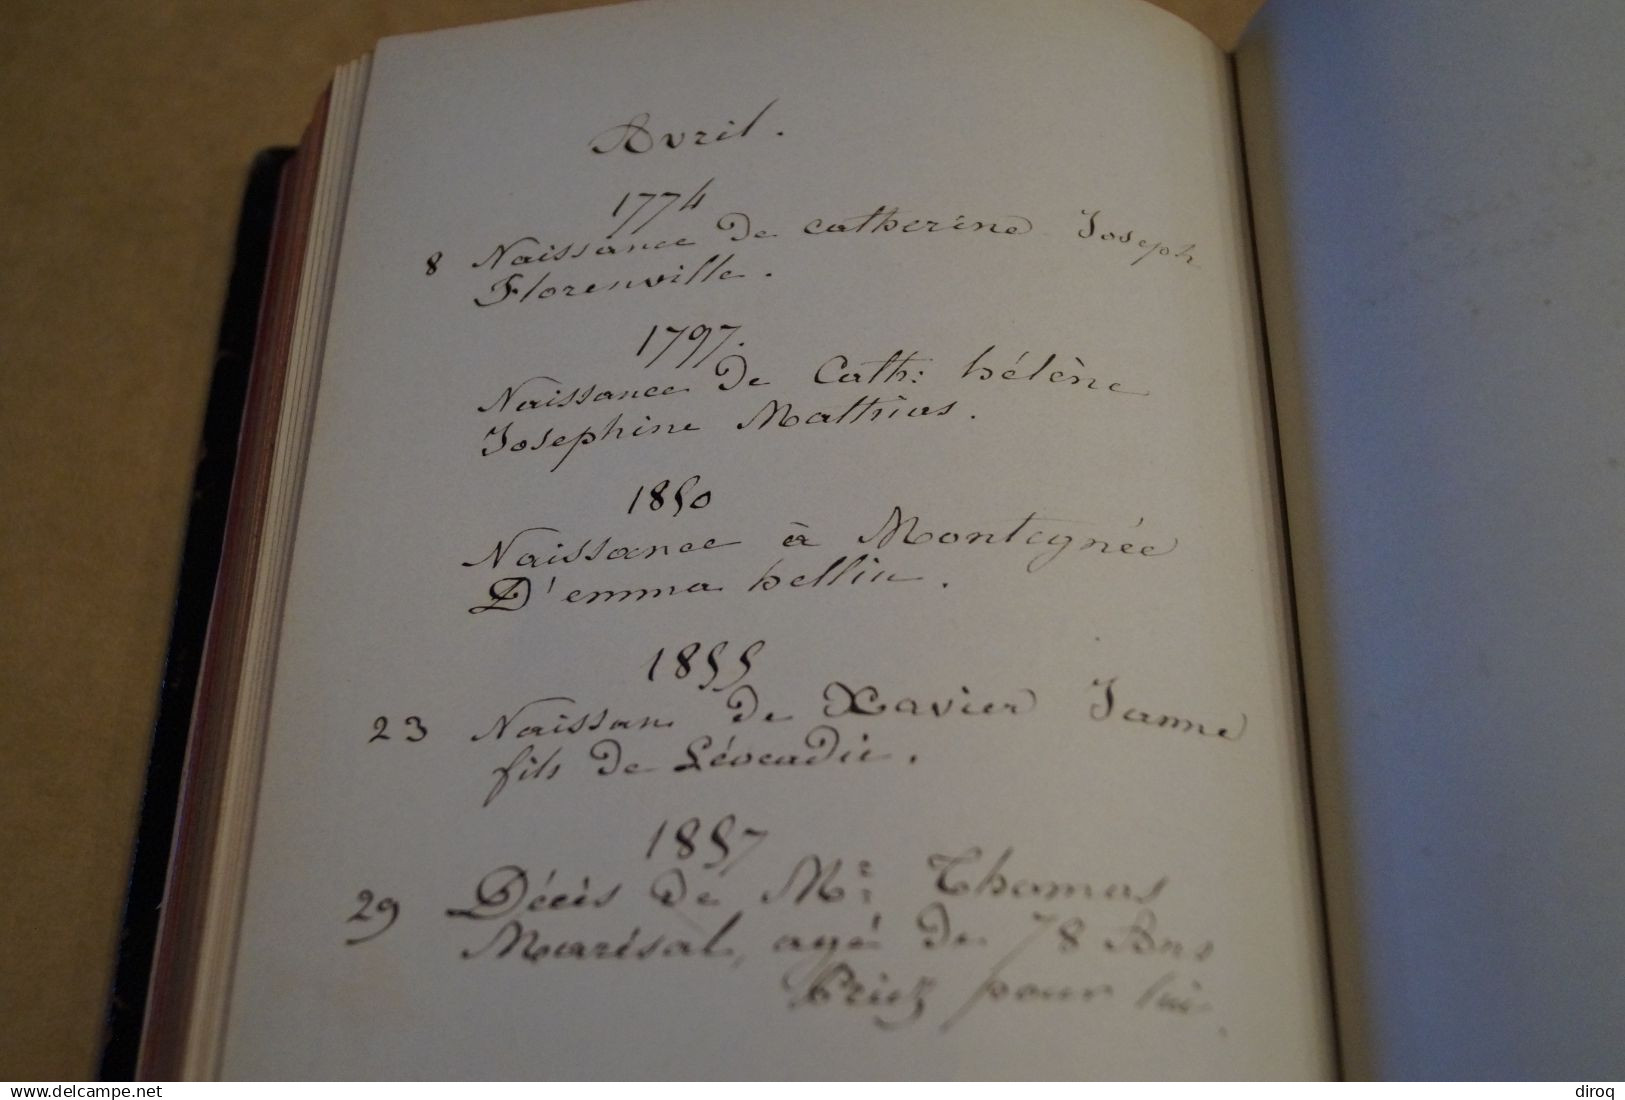 Avril.
1774
8 Naissance de catherine Joseph
Florenville.
1797.
Naissance de Cath: hélène
Josephine Mathias.
1850
Naissance à Montegnée
D'emma hellin.
1855
23 Naissan de Xavier Janne
fils de Léocadie.
1857
29 Décès de Mr: Thomas
Marésal, agé de 78 Ans
Priez pour lui.
delcampe.net
diroq